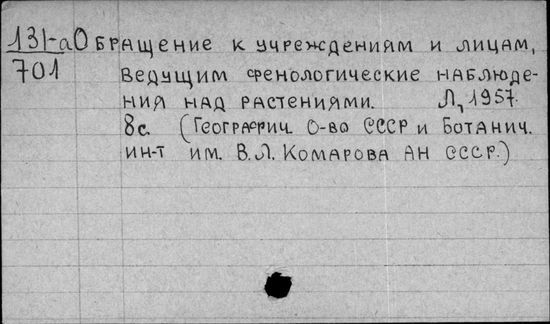 131-а Обращение к учреждениям и лицам,
701 ведущим фенологические наблюде-
ния над растениями. Л, 1957.
8с. (Географич. о-во СССР и Ботанич.
ин-т им. В.Л. Комарова АН СССР.)